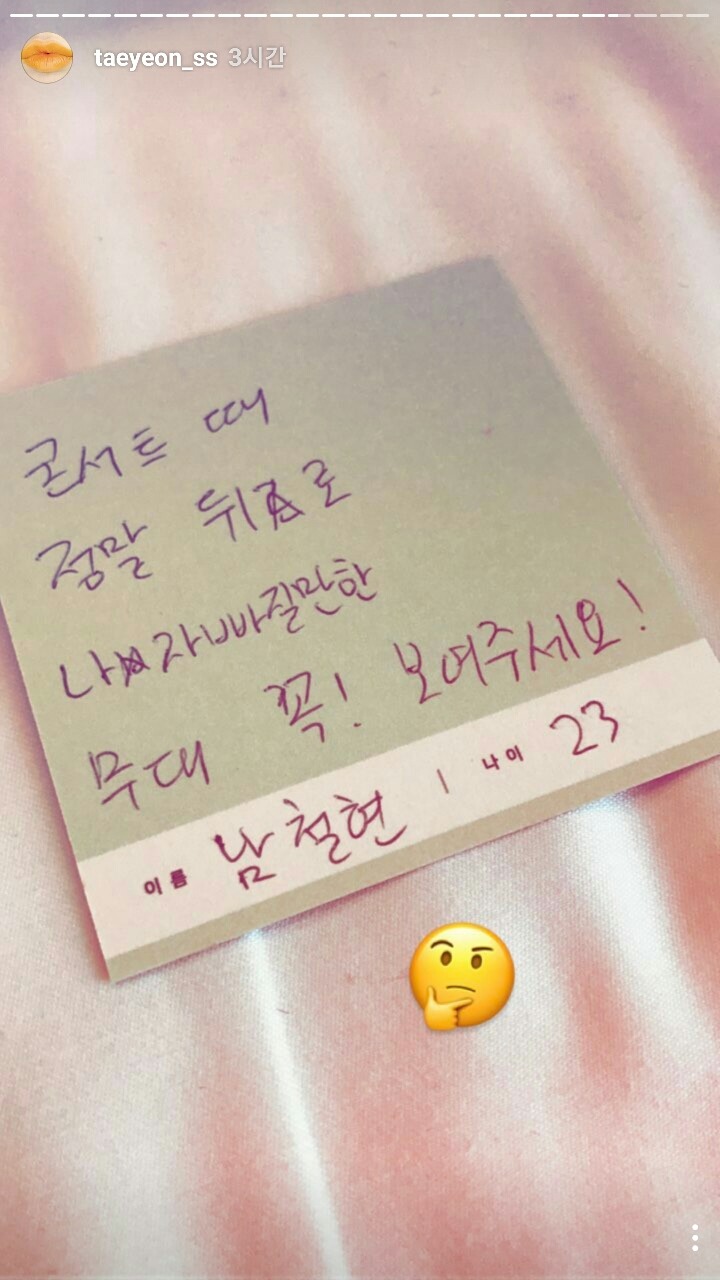 taeyeon_ss 3시간
콘서트 때
정말 뒤로
나자빠질만한
무대 꼭! 보여주세요!
이름 남철현 | 나이 23